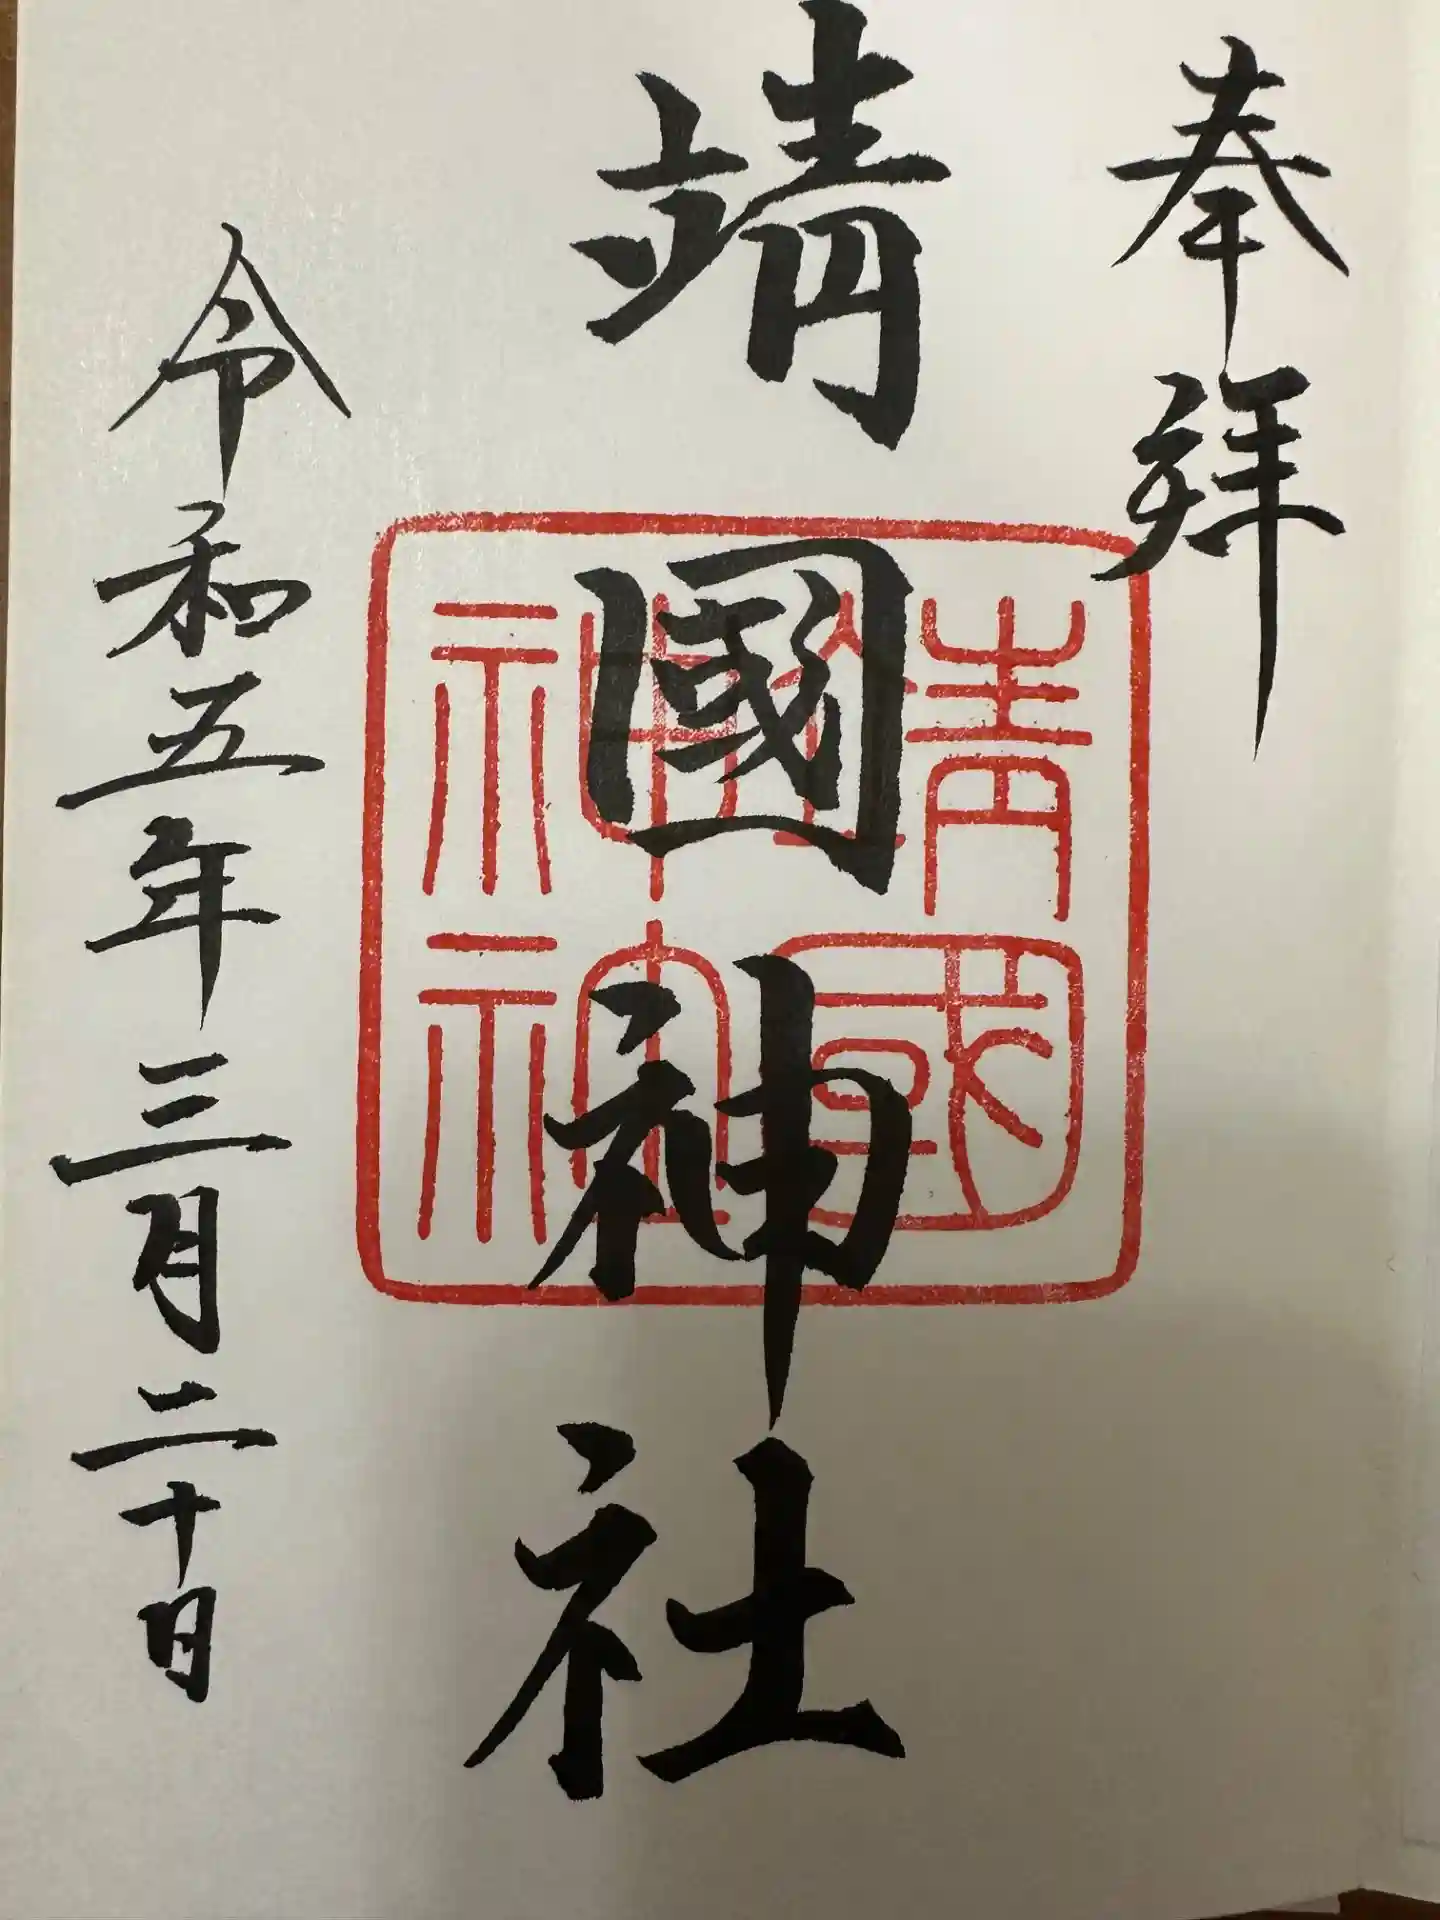 奉拜
靖國神社
靖國
神社
令和五年三月二十日